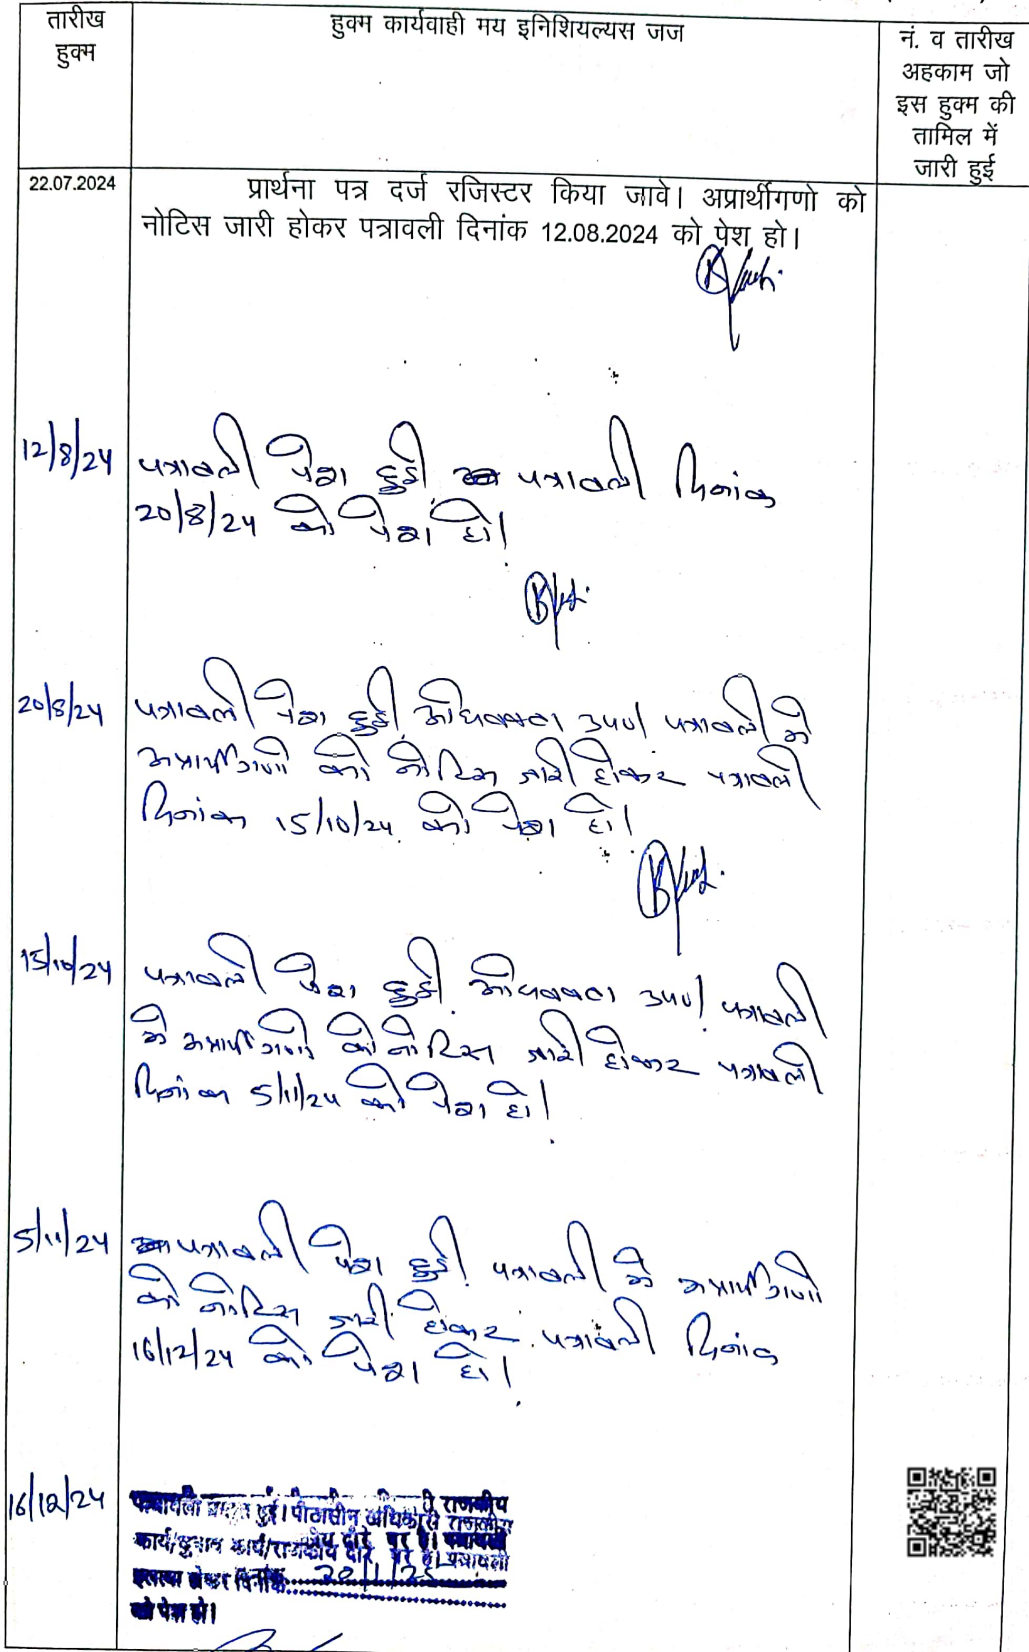 तारीख
हुक्म
हुक्म कार्यवाही मय इनिशियल्यस जज
नं. व तारीख
अहकाम जो
इस हुक्म की
तामिल में
जारी हुई
22.07.2024
प्रार्थना पत्र दर्ज रजिस्टर किया जावे। अप्रार्थीगणो को
नोटिस जारी होकर पत्रावली दिनांक 12.08.2024 को पेश हो।
12/8/24
पत्रावली पेश हुई पत्रावली दिनांक
20/8/24 को पेश हो।
20/8/24
पत्रावली पेश हुई अधिवक्ता उप0। पत्रावली मे
अप्रार्थीगणो को नोटिस जारी होकर पत्रावली
दिनांक 15/10/24 को पेश हो।
15/10/24
पत्रावली पेश हुई अधिवक्ता उप0। पत्रावली
मे अप्रार्थीगणो को नोटिस जारी होकर पत्रावली
दिनांक 5/11/24 को पेश हो।
5/11/24
पत्रावली पेश हुई पत्रावली मे अप्रार्थीगणो
को नोटिस जारी होकर पत्रावली दिनांक
16/12/24 को पेश हो।
16/12/24
पत्रावली हुई। पीठासीन अधिकारी राजकीय
कार्य/चुनाव कार्य/राजकीय दौरे पर है। पत्रावली
दिनांक 20/1/25
को पेश हो।